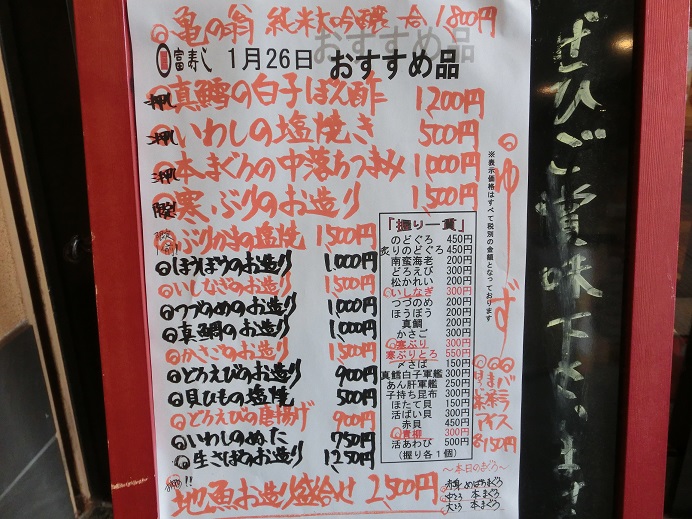 亀の翁 純米大吟醸 一合 1,800円
富寿し 1月26日 おすすめ品
おすすめ品
押し 真鱈の白子ぽん酢 1,200円
押し いわしの塩焼き 500円
押し 本まぐろの中落ちつまみ 1,000円
寒ぶりのお造り 1,500円
ぶりかまの塩焼 1,500円
ほうぼうのお造り 1,000円
いしなぎのお造り 1,500円
つづのめのお造り 1,000円
真鯛のお造り 1,000円
かさごのお造り 1,500円
どろえびのお造り 900円
貝ひもの塩焼 500円
どろえびの唐揚げ 900円
いわしのぬた 750円
生さばのお造り 1,250円
!! 地魚お造り盛合せ 2,500円
「握り一貫」
のどぐろ 450円
炙りのどぐろ 450円
南蛮海老 200円
どろえび 300円
松かれい 200円
いしなぎ 300円
つづのめ 200円
ほうぼう 200円
真鯛 200円
かさご 300円
寒ぶり 300円
寒ぶりとろ 550円
〆さば 150円
真鱈白子軍艦 300円
あん肝軍艦 250円
子持ち昆布 300円
ほたて貝 150円
活ばい貝 300円
赤貝 450円
青柳 300円
活あわび 500円
(握り各1個)
※表示価格はすべて税別の金額となっております
ゆず
バニラ
抹茶
ほうじ茶
アイス
各150円
〜本日のまぐろ〜
赤身 めばちまぐろ
中とろ 本まぐろ
大とろ 本まぐろ
ぜひご賞味下さいませ